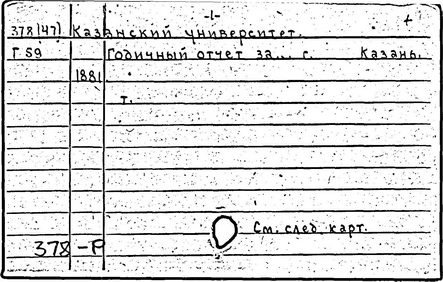 -1- +
378(47) Казанский университет.
Г 59 Годичный отчет за... г. Казань.
1881
т.
См. след. карт.
378 -Р